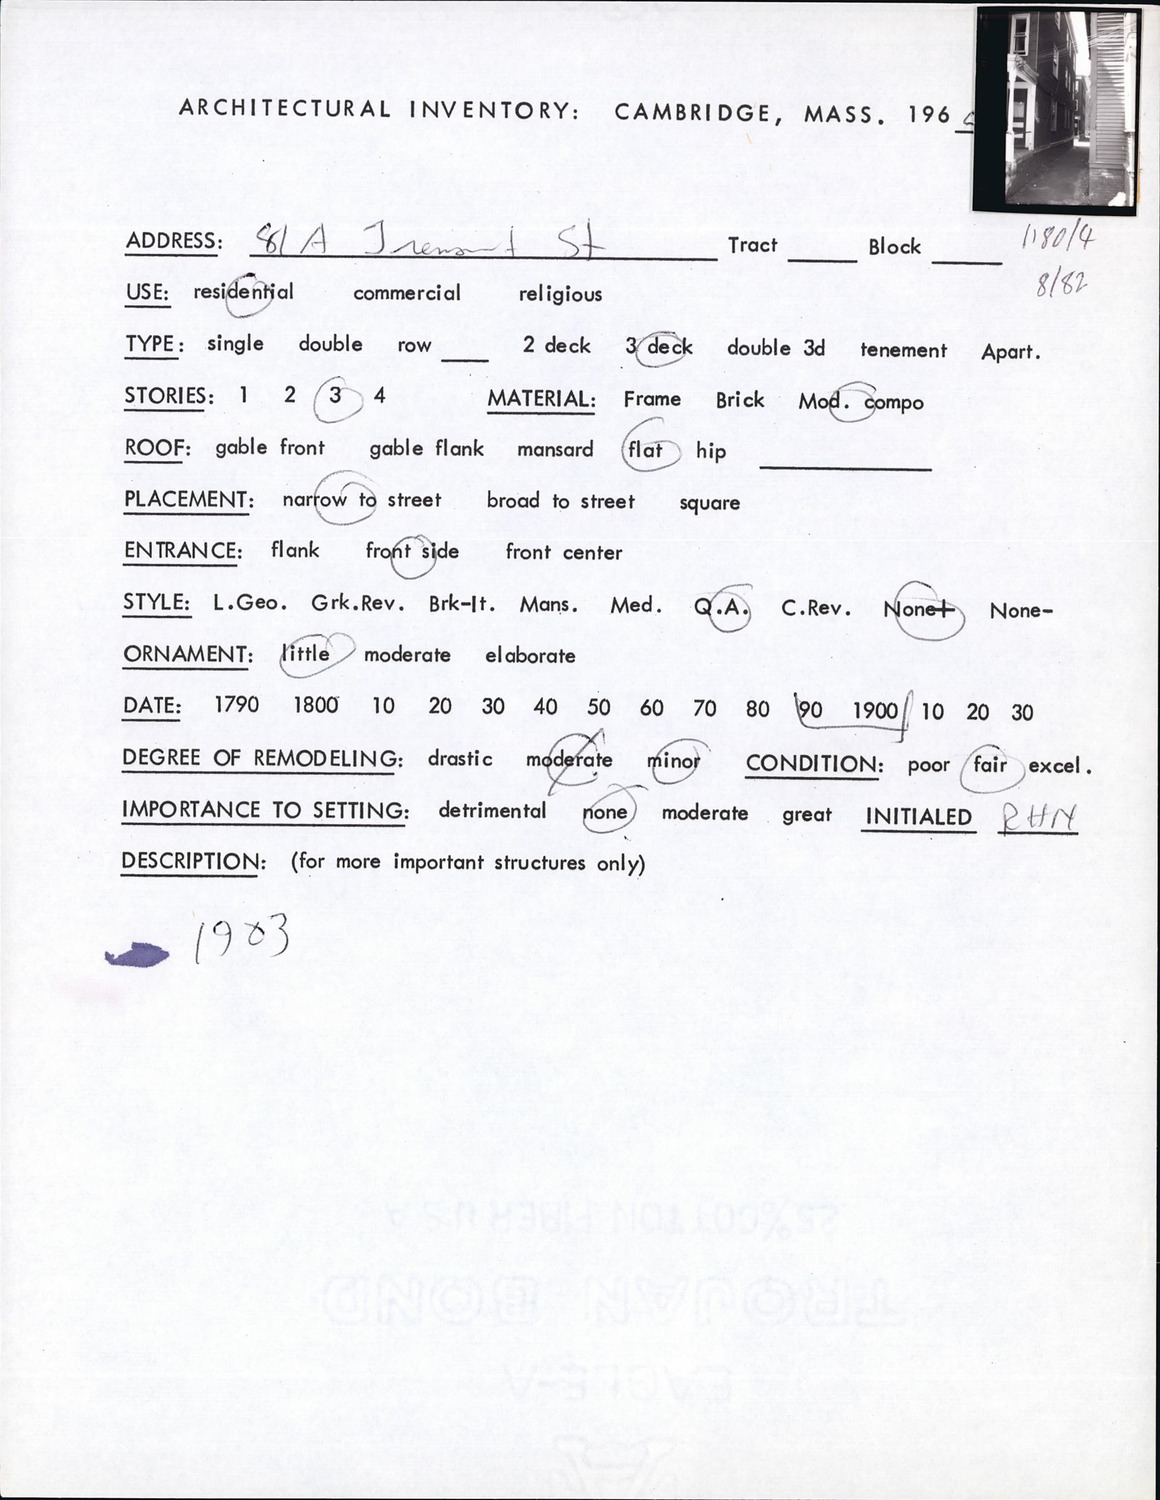 ARCHITECTURAL INVENTORY: CAMBRIDGE, MASS. 196
ADDRESS: 81 A Tremont St Tract Block 1180/4
8/82
USE: residential commercial religious
TYPE: single double row 2 deck 3 deck double 3d tenement Apart.
STORIES: 1 2 3 4 MATERIAL: Frame Brick Mod. compo
ROOF: gable front gable flank mansard flat hip
PLACEMENT: narrow to street broad to street square
ENTRANCE: flank front side front center
STYLE: L.Geo. Grk.Rev. Brk-It. Mans. Med. Q.A. C.Rev. None+ None-
ORNAMENT: little moderate elaborate
DATE: 1790 1800 10 20 30 40 50 60 70 80 90 1900 10 20 30
DEGREE OF REMODELING: drastic moderate minor CONDITION: poor fair excel.
IMPORTANCE TO SETTING: detrimental none moderate great INITIALED RHN
DESCRIPTION: (for more important structures only)
1903
25% COTTON FIBER U S A
TROJAN BOND
EAGLE-A